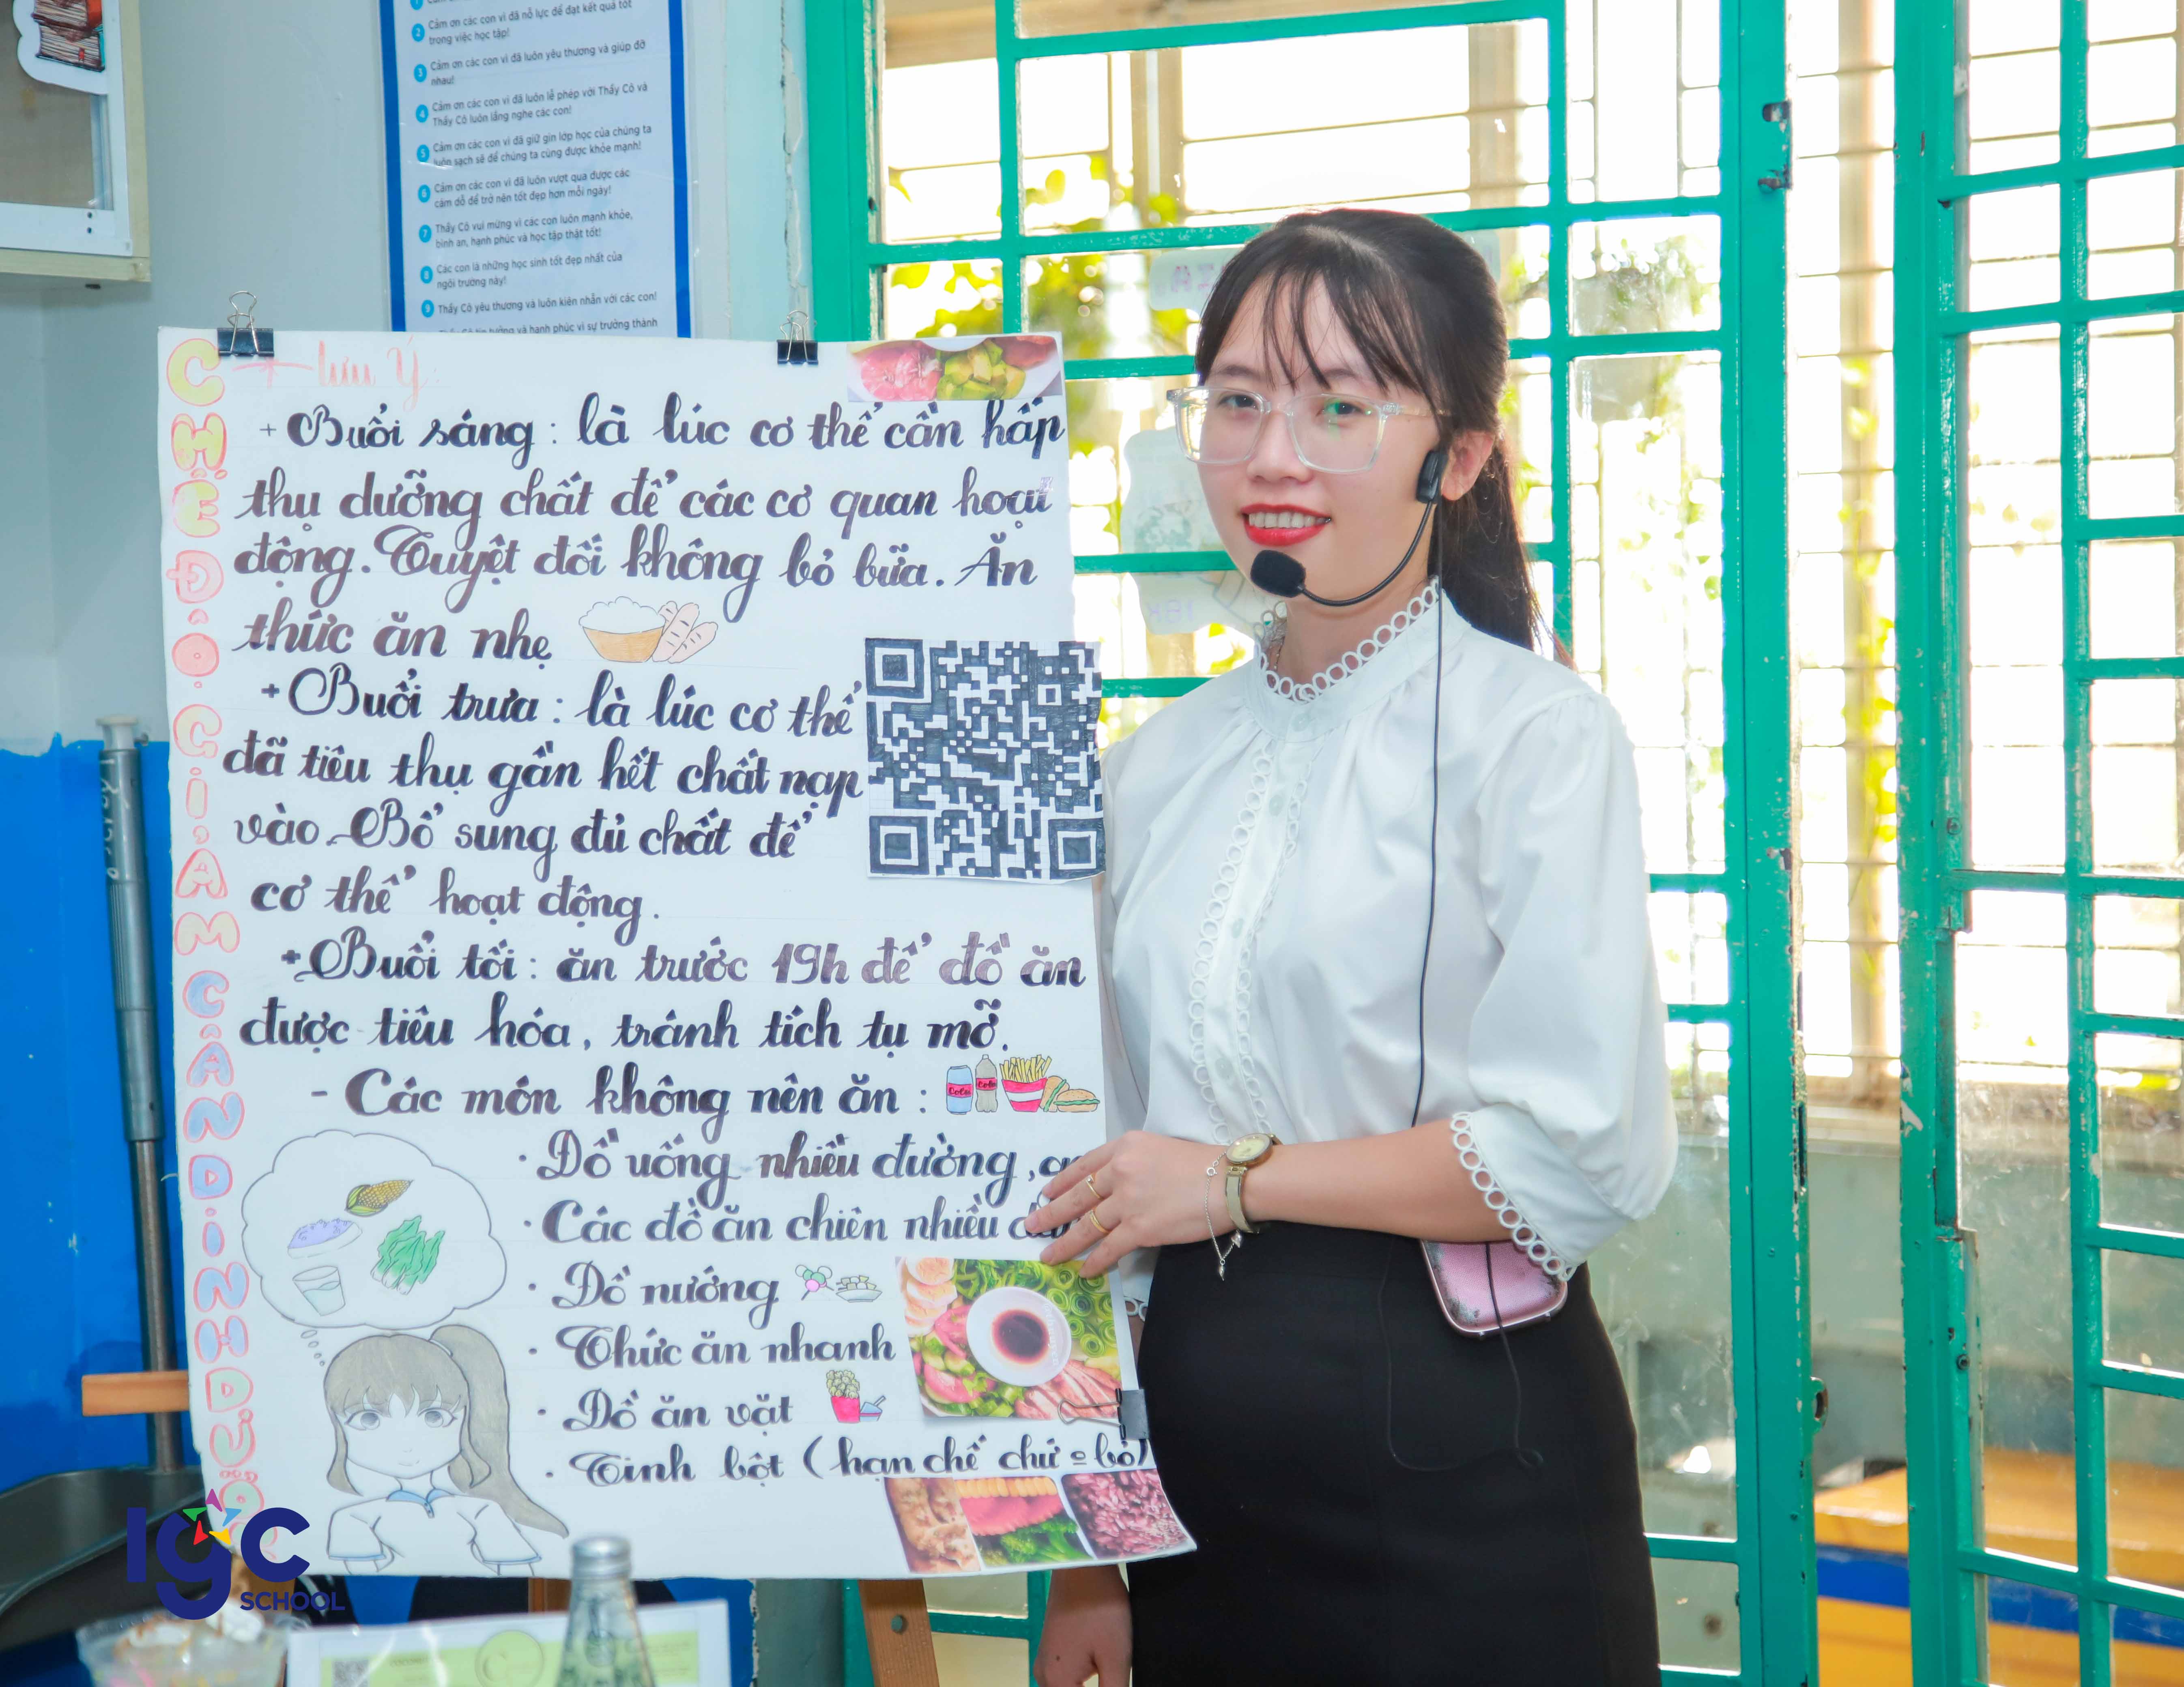 Cảm ơn các con vì đã nỗ lực để đạt kết quả tốt
2 trong việc học tập!
3 Cảm ơn các con vì đã luôn yêu thương và giúp đỡ
nhau!
4 Cảm ơn các con vì đã luôn lễ phép với Thầy Cô và
Thầy Cô luôn lắng nghe các con!
5 Cảm ơn các con vì đã giữ gìn lớp học của chúng ta
luôn sạch sẽ để chúng ta cùng được khỏe mạnh!
6 Cảm ơn các con vì đã luôn vượt qua được các
cám dỗ để trở nên tốt đẹp hơn mỗi ngày!
7 Thầy Cô vui mừng vì các con luôn mạnh khỏe,
bình an, hạnh phúc và học tập thật tốt!
8 Các con là những học sinh tốt đẹp nhất của
ngôi trường này!
9 Thầy Cô yêu thương và luôn kiên nhẫn với các con!
và hạnh phúc vì sự trưởng thành
CHẾ ĐỘ GIẢM CÂN DINH DƯỠNG
* Lưu Ý:
+ Buổi sáng: là lúc cơ thể cần hấp
thụ dưỡng chất để các cơ quan hoạt
động. Tuyệt đối không bỏ bữa. Ăn
thức ăn nhẹ
+ Buổi trưa: là lúc cơ thể
đã tiêu thụ gần hết chất nạp
vào. Bổ sung đủ chất để
cơ thể hoạt động.
+ Buổi tối: ăn trước 19h để đồ ăn
được tiêu hóa, tránh tích tụ mỡ.
- Các món không nên ăn:
Cola
Cola
· Đồ uống nhiều đường,
· Các đồ ăn chiên nhiều
· Đồ nướng
· Thức ăn nhanh
· Đồ ăn vặt
· Tinh bột (hạn chế chứ o bỏ)
IGC
SCHOOL